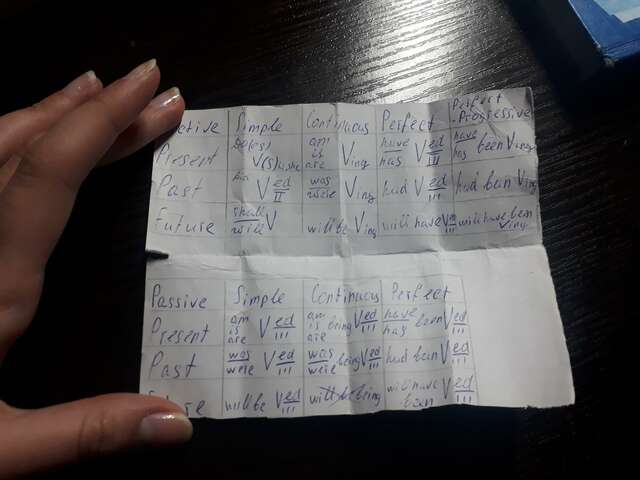 Active Simple Continuous Perfect Perfect Progressive
Present Do(es) V(s) he, she am is are Ving have has V ed III have has been Ving
Past Did V ed II was were Ving had V ed III had been Ving
Future shall will V will be Ving will have V ed III will have been Ving
Passive Simple Continuous Perfect
Present am is are V ed III am is are being V ed III have has been V ed III
Past was were V ed III was were being V ed III had been V ed III
Future will be V ed III will be being will have been V ed III